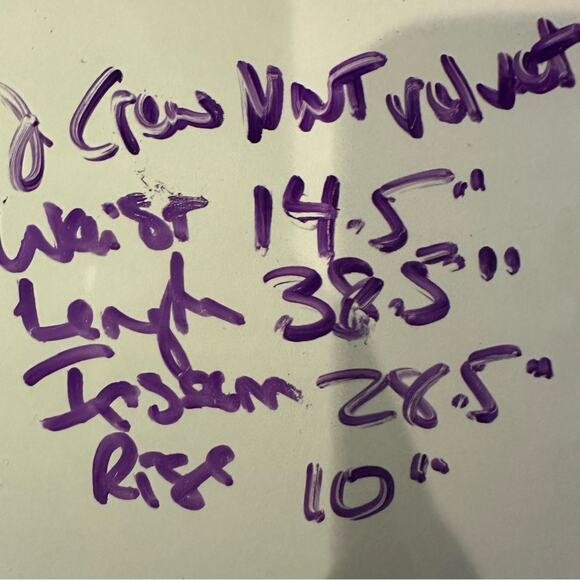 J Crew NWT velvet
Waist 14.5"
Length 38.5"
Inseam 28.5"
Rise 10"